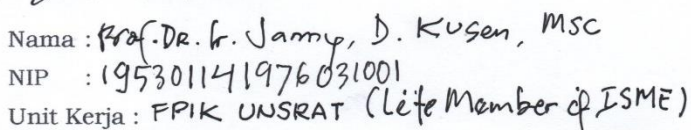 Nama : Prof. DR. Ir. Janny, D. Kusen, MSC
NIP : 195301141976031001
Unit Kerja : FPIK UNSRAT (Life Member of ISME)